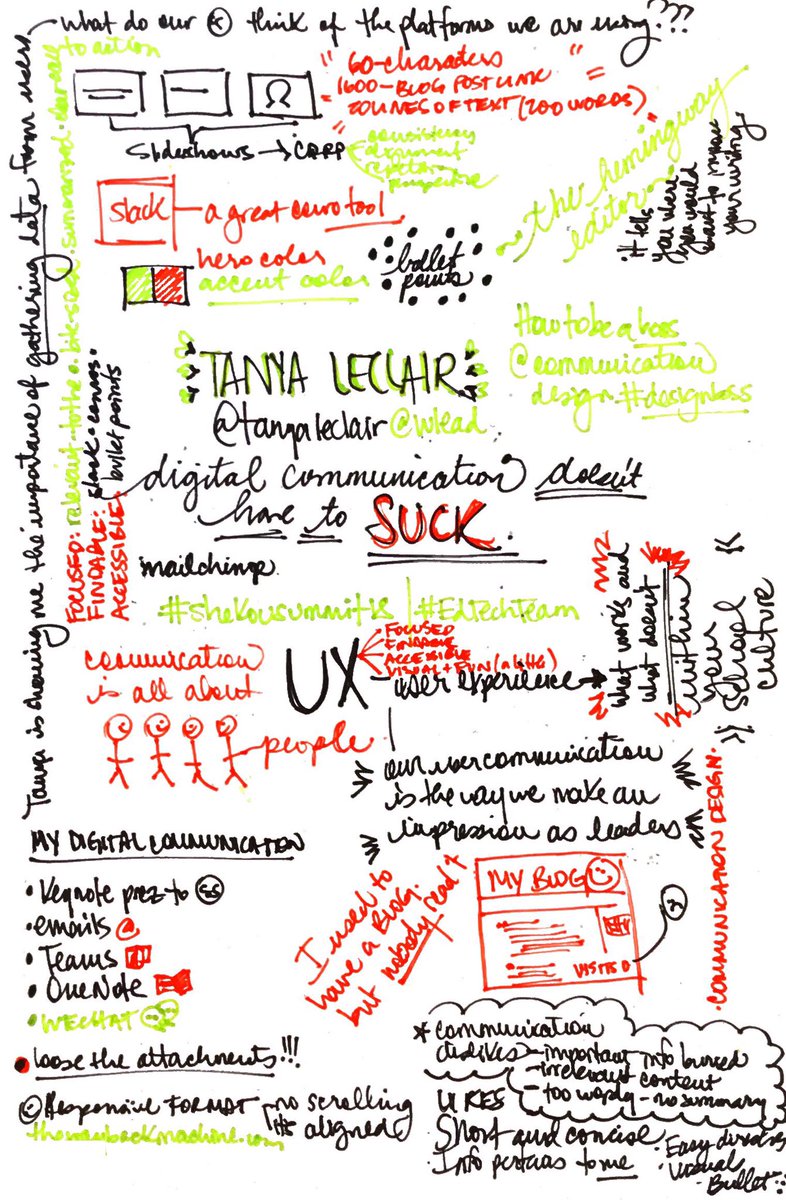 what do our think of the platforms we are using???
to action
60-characters
1600-BLOG POST LINK
20 LINES OF TEXT (200 WORDS)
Slideshows → CARP
consistency
alignment
repetition
perspective
the hemingway
editor
it tells
you where
you would
want to improve
your writing
slack
a great conv tool
hero color
accent color
bullet
points
How to be a boss
@communication
design #designboss
TANYA LECLAIR
@tanyaleclair @wlead
digital communication doesn't
have to SUCK.
Tanya is showing me the importance of gathering data from users
FOCUSED: relevant to the o. bite-sized. summarized. clear way
FINDABLE: slack. canvas.
ACCESSIBLE: bullet points
mailchimp
#shekousummit18 | #EdTechTeam
communication
is all about
people
UX
FOCUSED
FINDABLE
ACCESSIBLE
VISUAL + FUN
user experience →
what works and
what doesn't
within
your
school
culture
our user communication
is the way we make an
impression as leaders
COMMUNICATION DESIGN.
MY DIGITAL COMMUNICATION
• Keynote prez to
• emails @
• Teams
• OneNote
• WECHAT
• loose the attachments!!!
Responsive FORMAT - no scrolling
its aligned
thewaybackmachine.com
I used to
have a BLOG.
but nobody read it
MY BLOG
VISITED
* communication
dislikes - important info buried
- irrelevant content
- too wordy - no summary
LIKES
Short and concise
Info pertains to me
• Easy directives
• Visual
• Bullet